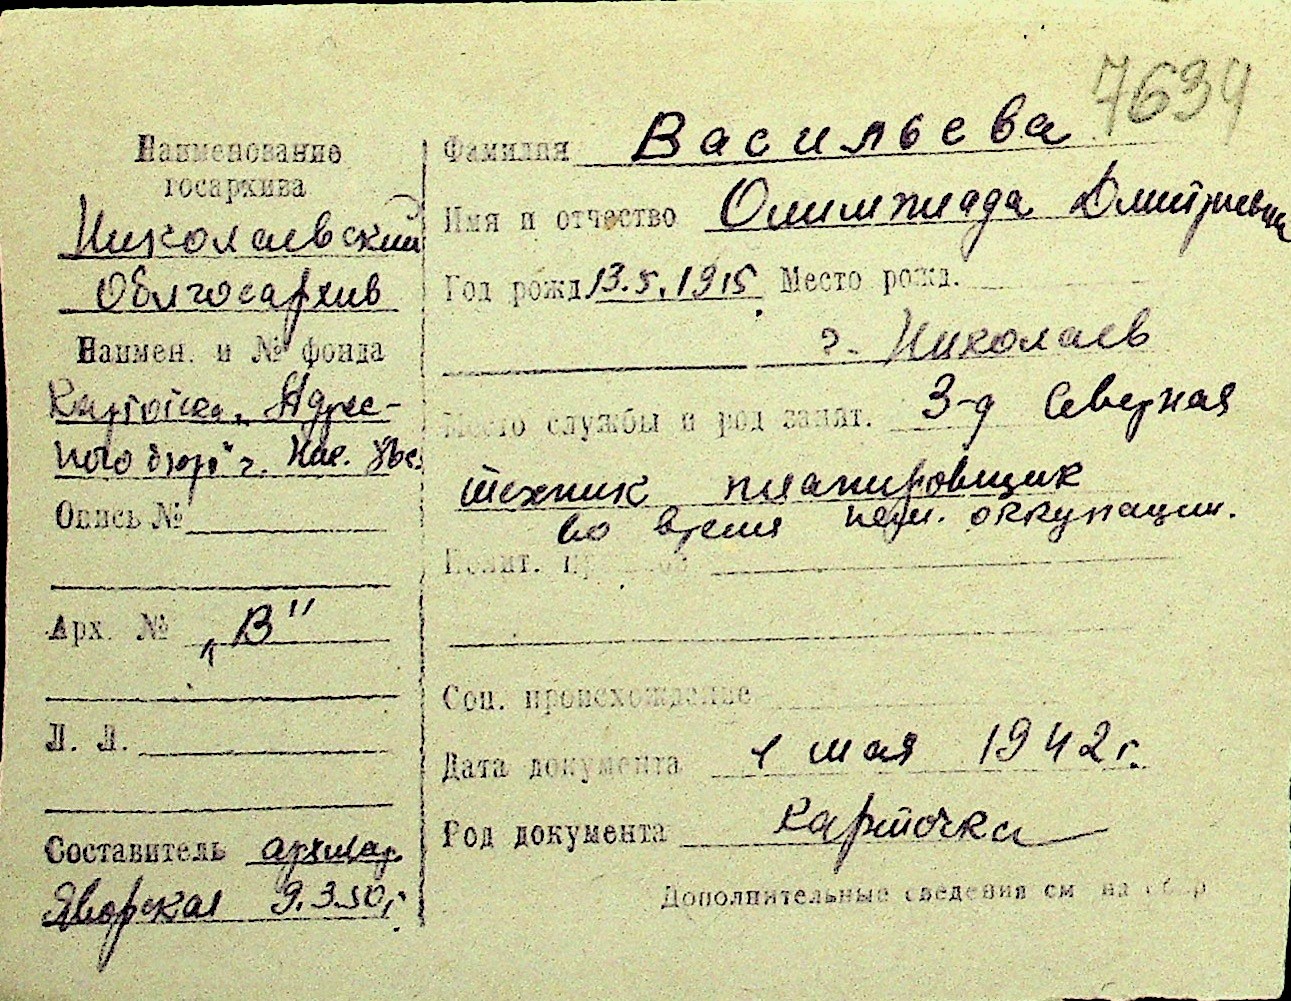 7634
Наименование
госархива
Николаевский
Облгосархив
Наимен. и № фонда
Картотека „Адрес-
ного бюро" г.
Опись №
Арх. № „В"
Л. Л.
Составитель архивар.
Яворская 9.3.50 г.
Фамилия Васильева
Имя и отчество Олимпиада Дмитриевна
Год рожд 13.5.1915 Место рожд.
г. Николаев
Место службы и род занят. 3-д Северная
техник планировщик
во время нем. оккупации.
Полит.
Соц. происхождение
Дата документа 1 мая 1942 г.
Род документа карточка
Дополнительные сведения см на обор